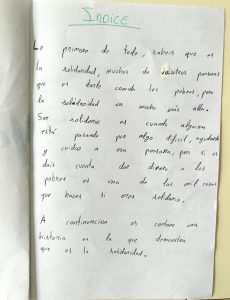 INDICE
Lo primero de todo, sabeis que es
la solidaridad, muchos de vosotros pensareis
que es darle comida los pobres, pero
la solidaridad va mucho más alla.
Ser solidario es cuando alguien
está pasando por algo dificil, ayudarle
y cuidar a esa persona, pero si os
dais cuenta dar dinero a los
pobres es una de las mil cosas
que haces si eres solidario.
A continuacion os contare una
historia en la que demuestra
que es la solidaridad.